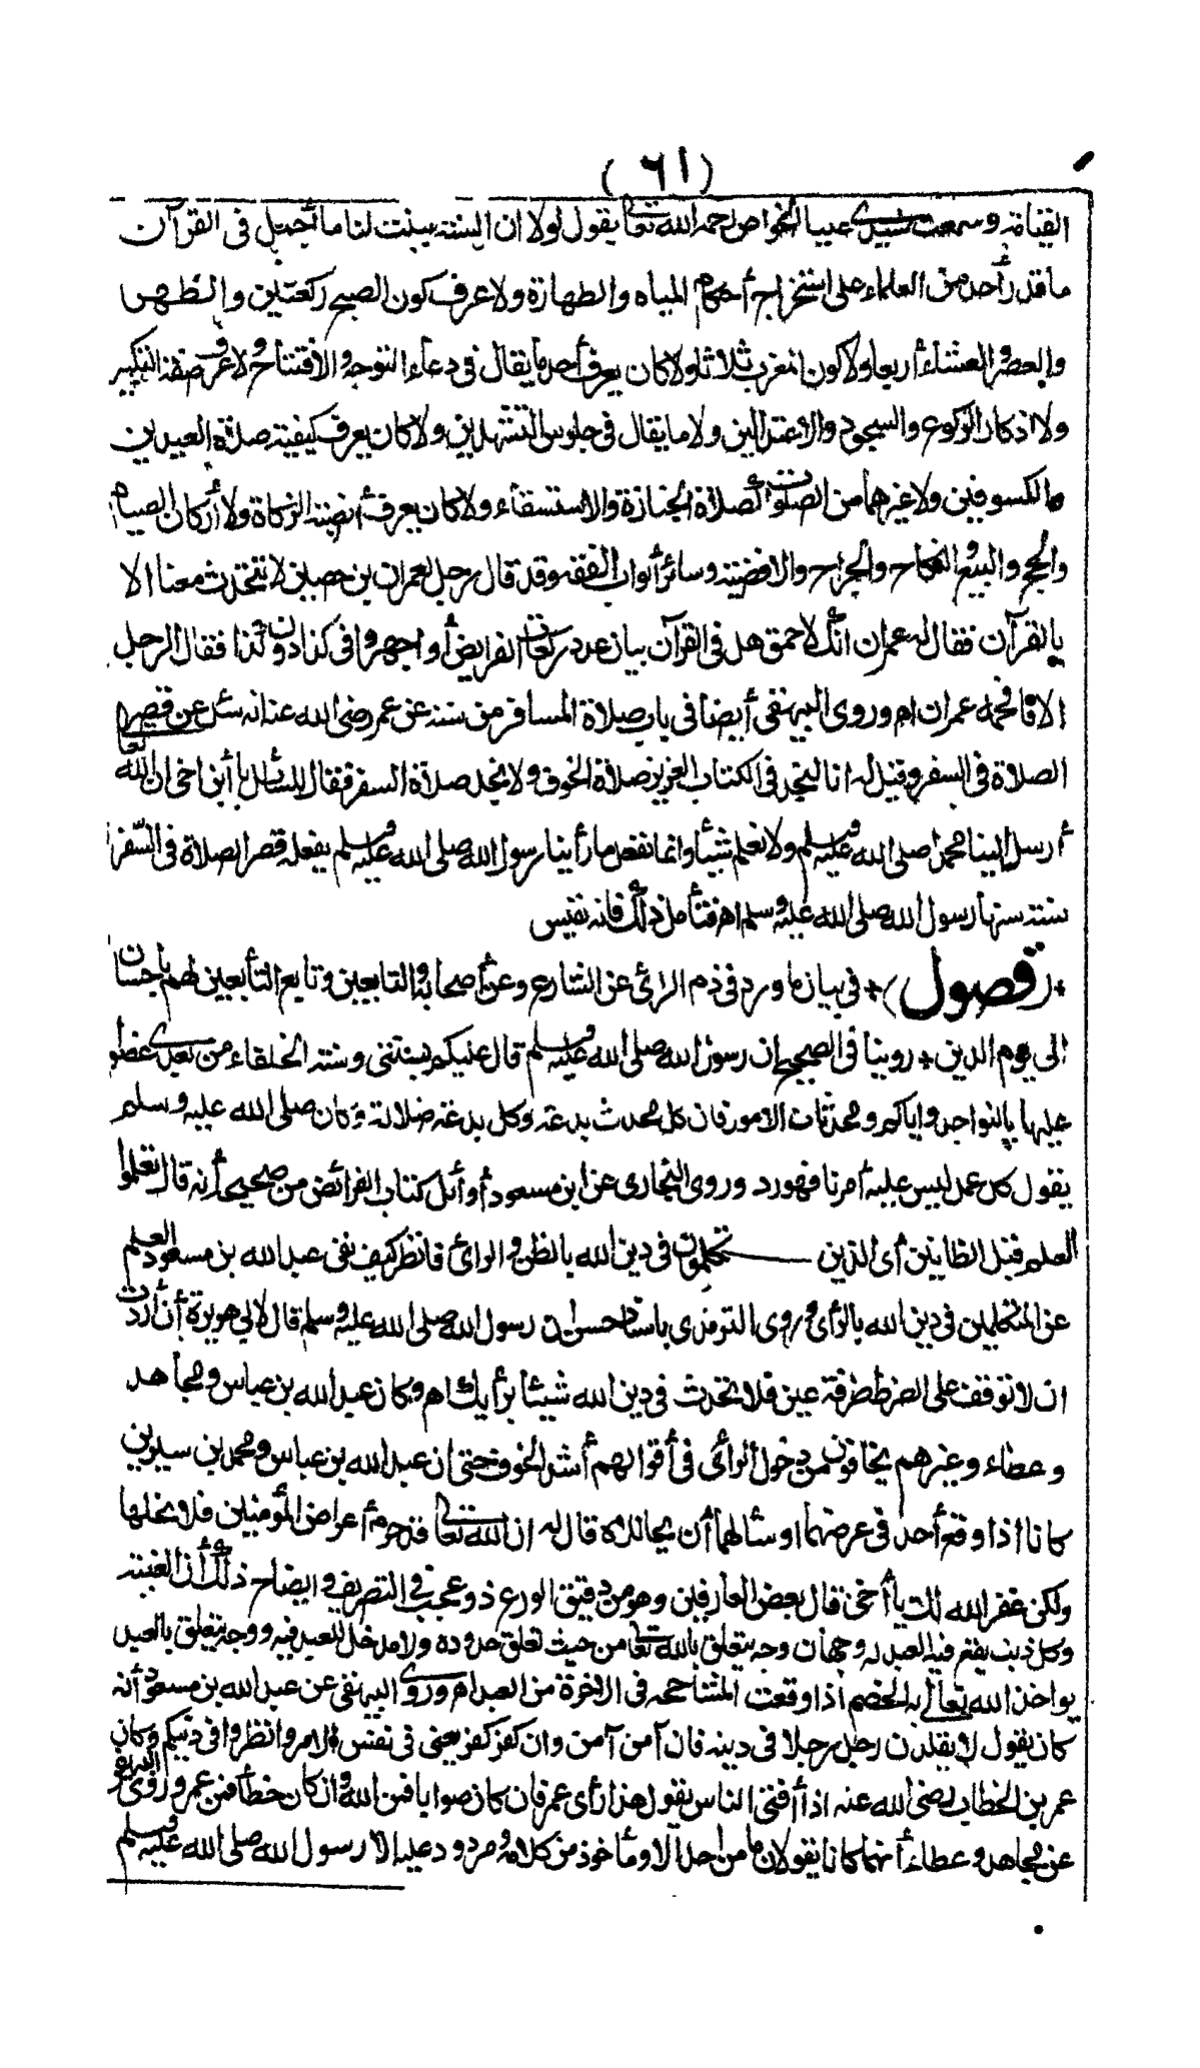 (٦١)
القيامة وسمعت سيدي عليا الخواص رحمه الله تعالى يقول لولا ان السنة بينت لنا ما أجمل فى القرآن
ما قدر أحد من العلماء على استخراج أحكام المياه والطهارة ولا عرف كون الصبح ركعتين والظهر
والعصر والعشاء أربعا ولا كون المغرب ثلاثا ولا كان يعرف أحد ما يقال فى دعاء التوجه والافتتاح ولا عرف صفة التكبير
ولا اذكار الركوع والسجود والاعتدالين ولا ما يقال فى جلوس التشهدين ولا كان يعرف كيفية صلاة العيدين
والكسوفين ولا غيرهما من الصلوات كصلاة الجنازة والاستسقاء ولا كان يعرف أنصبة الزكاة ولا أركان الصيام
والحج والبيع والنكاح والجراح والاقضية وسائر أبواب الفقه وقد قال رجل لعمران بن حصين لا تتحدث معنا الا
بالقرآن فقال له عمران انك لاحمق هل فى القرآن بيان عدد ركعات الفرائض أو اجهروا فى كذا دون كذا فقال الرجل
لا فافحمه عمران اه وروى البيهقى أيضا فى باب صلاة المسافر من سننه عن عمر رضى الله عنه انه سئل عن قصر
الصلاة فى السفر وقيل له انا لنجد فى الكتاب العزيز صلاة الخوف ولا نجد صلاة السفر فقال للسائل يا أبن اخى ان الله تعالى
أرسل الينا محمدا صلى الله عليه وسلم ولا نعلم شيئا وانما نفعل ما رأينا رسول الله صلى الله عليه وسلم يفعله قصر الصلاة فى السفر
سنة سنها رسول الله صلى الله عليه وسلم اه فتأمل ذلك فانه نفيس
* (فصول) * فى بيان ما ورد فى ذم الرأى عن الشارع وعن أصحابه والتابعين وتابع التابعين لهم باحسان
الى يوم الدين * روينا فى الصحيح ان رسول الله صلى الله عليه وسلم قال عليكم بسنتى وسنة الخلفاء من بعدى عضوا
عليها بالنواجد واياكم ومحدثات الامور فان كل محدث بدعة وكل بدعة ضلالة وكان صلى الله عليه وسلم
يقول كل عمل ليس عليه أمرنا فهو رد وروى البخارى عن ابن مسعود أوائل كتاب الفرائض من صحيحه أنه قال تعلموا
العلم قبل الظانين أى الذين تكلمون فى دين الله بالظن والرائ فانظر كيف نفى عبد الله بن مسعود العلم
عن المتكلمين فى دين الله بالرأى وروى الترمذى باسناد حسن ان رسول الله صلى الله عليه وسلم قال لابى هريرة أن أردت
ان لا توقف على الصراط طرفة عين فلا تحدث فى دين الله شيئا برأيك اه وكان عبد الله بن عباس ومجاهد
وعطاء وغيرهم يخافون من دخول الرأى فى أقوالهم أشد الخوف حتى ان عبد الله بن عباس ومحمد بن سيرين
كانا اذا وقع أحد فى عرضهما وسألهما أن يحاللاه قال له ان الله تعالى قد حرم أعراض المؤمنين فلا نحلها
ولكن غفر الله لك يا أخى قال بعض العارفين وهو من دقيق الورع ذو عجب فى التصريف وايضاح ذلك أن الغيبة
وكل ذنب يقع فيه العبد له وجهان وجه يتعلق بالله تعالى من حيث تعلق حدوده ولا مدخل للعبد فيه ووجه يتعلق بالعبد
يواخذ الله تعالى به الخصم اذا وقعت المشاححه فى الاخرة من العبد اه وروى البيهقى عن عبد الله بن مسعود أنه
كان يقول لا يقلدن رجل رجلا فى دينه فان آمن آمن وان كفر كفر يعنى فى نفس الامر وانظروا فى دينكم وكان
عمر بن الخطاب رضى الله عنه اذا أفتى الناس يقول هذا رأى عمر فان كان صوابا فمن الله وان كان خطأ فمن عمر وروى البيهقى
عن مجاهد وعطاء أنهما كانا يقولان ما من احد الا ومأخوذ من كلامه ومردود عليه الا رسول الله صلى الله عليه وسلم